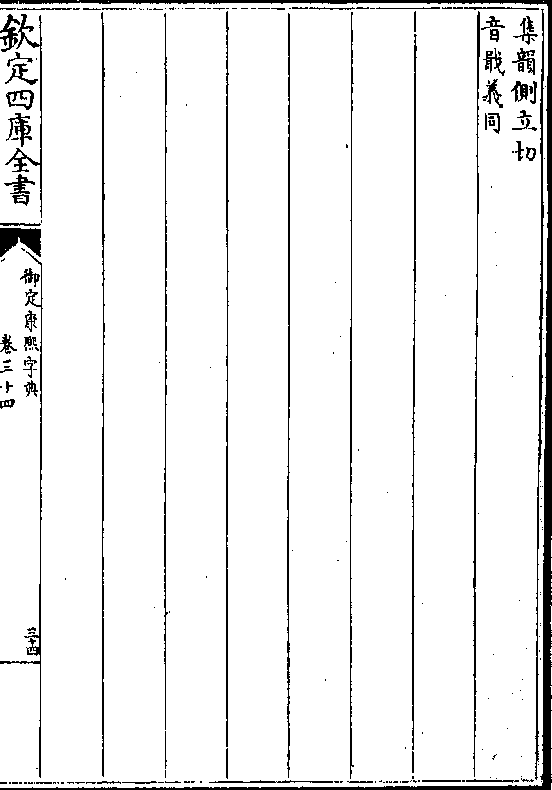 集韻側立切
音戢義同
欽定四庫全書
御定康熙字典
卷三十四
三十四